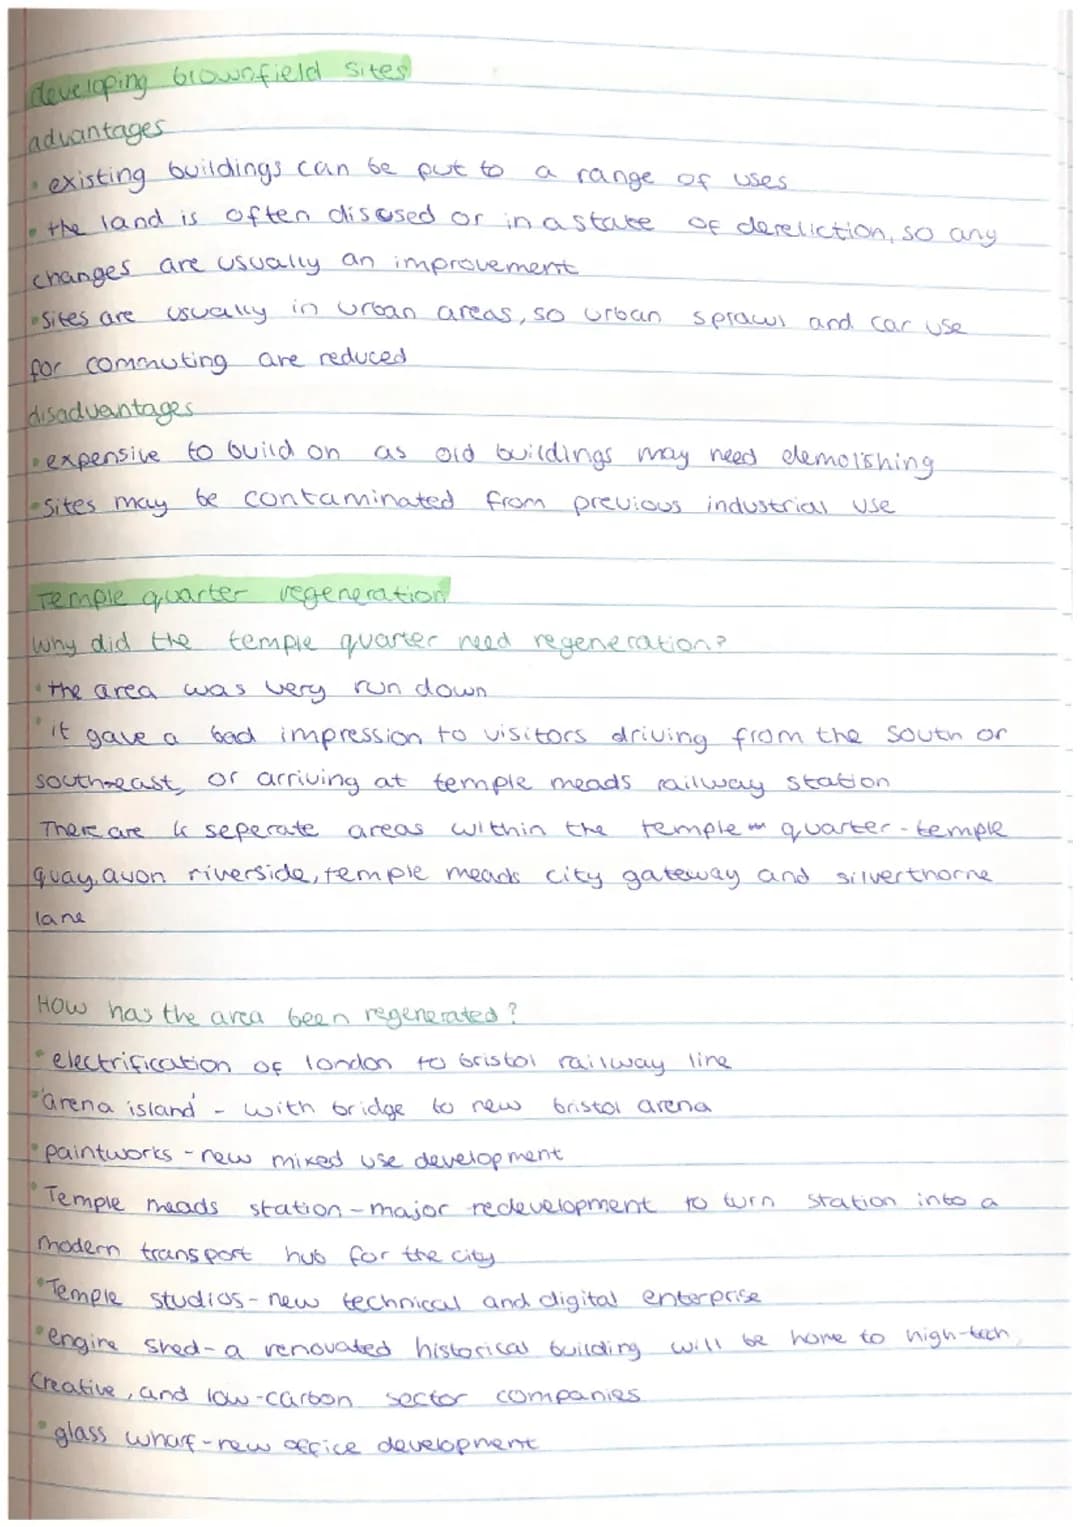 developing brownfield sites
advantages
• existing buildings can be put to a range of uses
• the land is often disused or in a state of dereliction, so any
changes are usually an improvement
• Sites are usually in urban areas, so urban sprawl and car use
for commuting are reduced
disadvantages
• expensive to build on as old buildings may need demolshing
• Sites may be contaminated from previous industrial use
Temple quarter regeneration
Why did the temple quarter need regeneration?
• the area was very run down
• it gave a bad impression to visitors driving from the South or
southeast, or arriving at temple meads railway station
There are 4 seperate areas within the temple quarter - temple
quay, avon riverside, temple meads city gateway and silverthorne
lane
How has the area been regenerated?
• electrification of london to bristol railway line
• 'arena island' - with bridge to new bristol arena
• paintworks - new mixed use development
• Temple meads station - major redevelopment to turn station into a
modern transport hub for the city
• Temple studios - new technical and digital enterprise
• engine shed - a renovated historical building will be home to high-tech,
creative, and low-carbon sector companies
• glass wharf - new office development